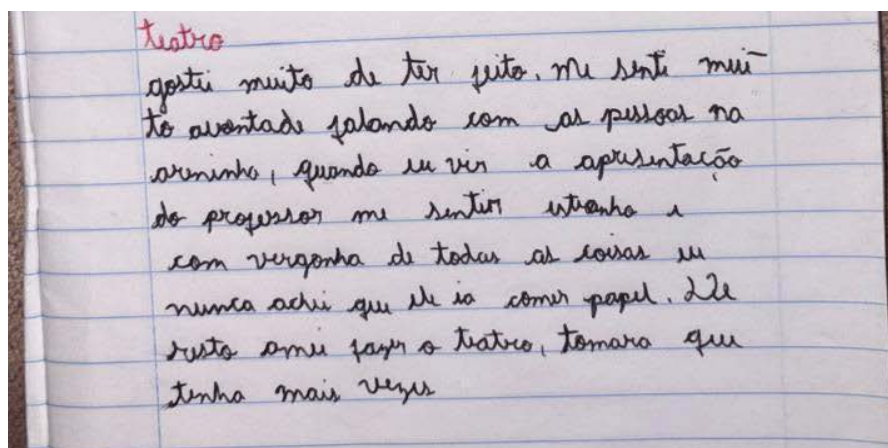 teatro
gostei muito de ter feito. me senti mui-
to avontade falando com as pessoas na
areninha, quando eu vir a apresentação
do professor me sentir estranha e
com vergonha de todas as coisas eu
nunca achei que ele ia comer papel. De
resto amei fazer o teatro, tomara que
tenha mais vezes